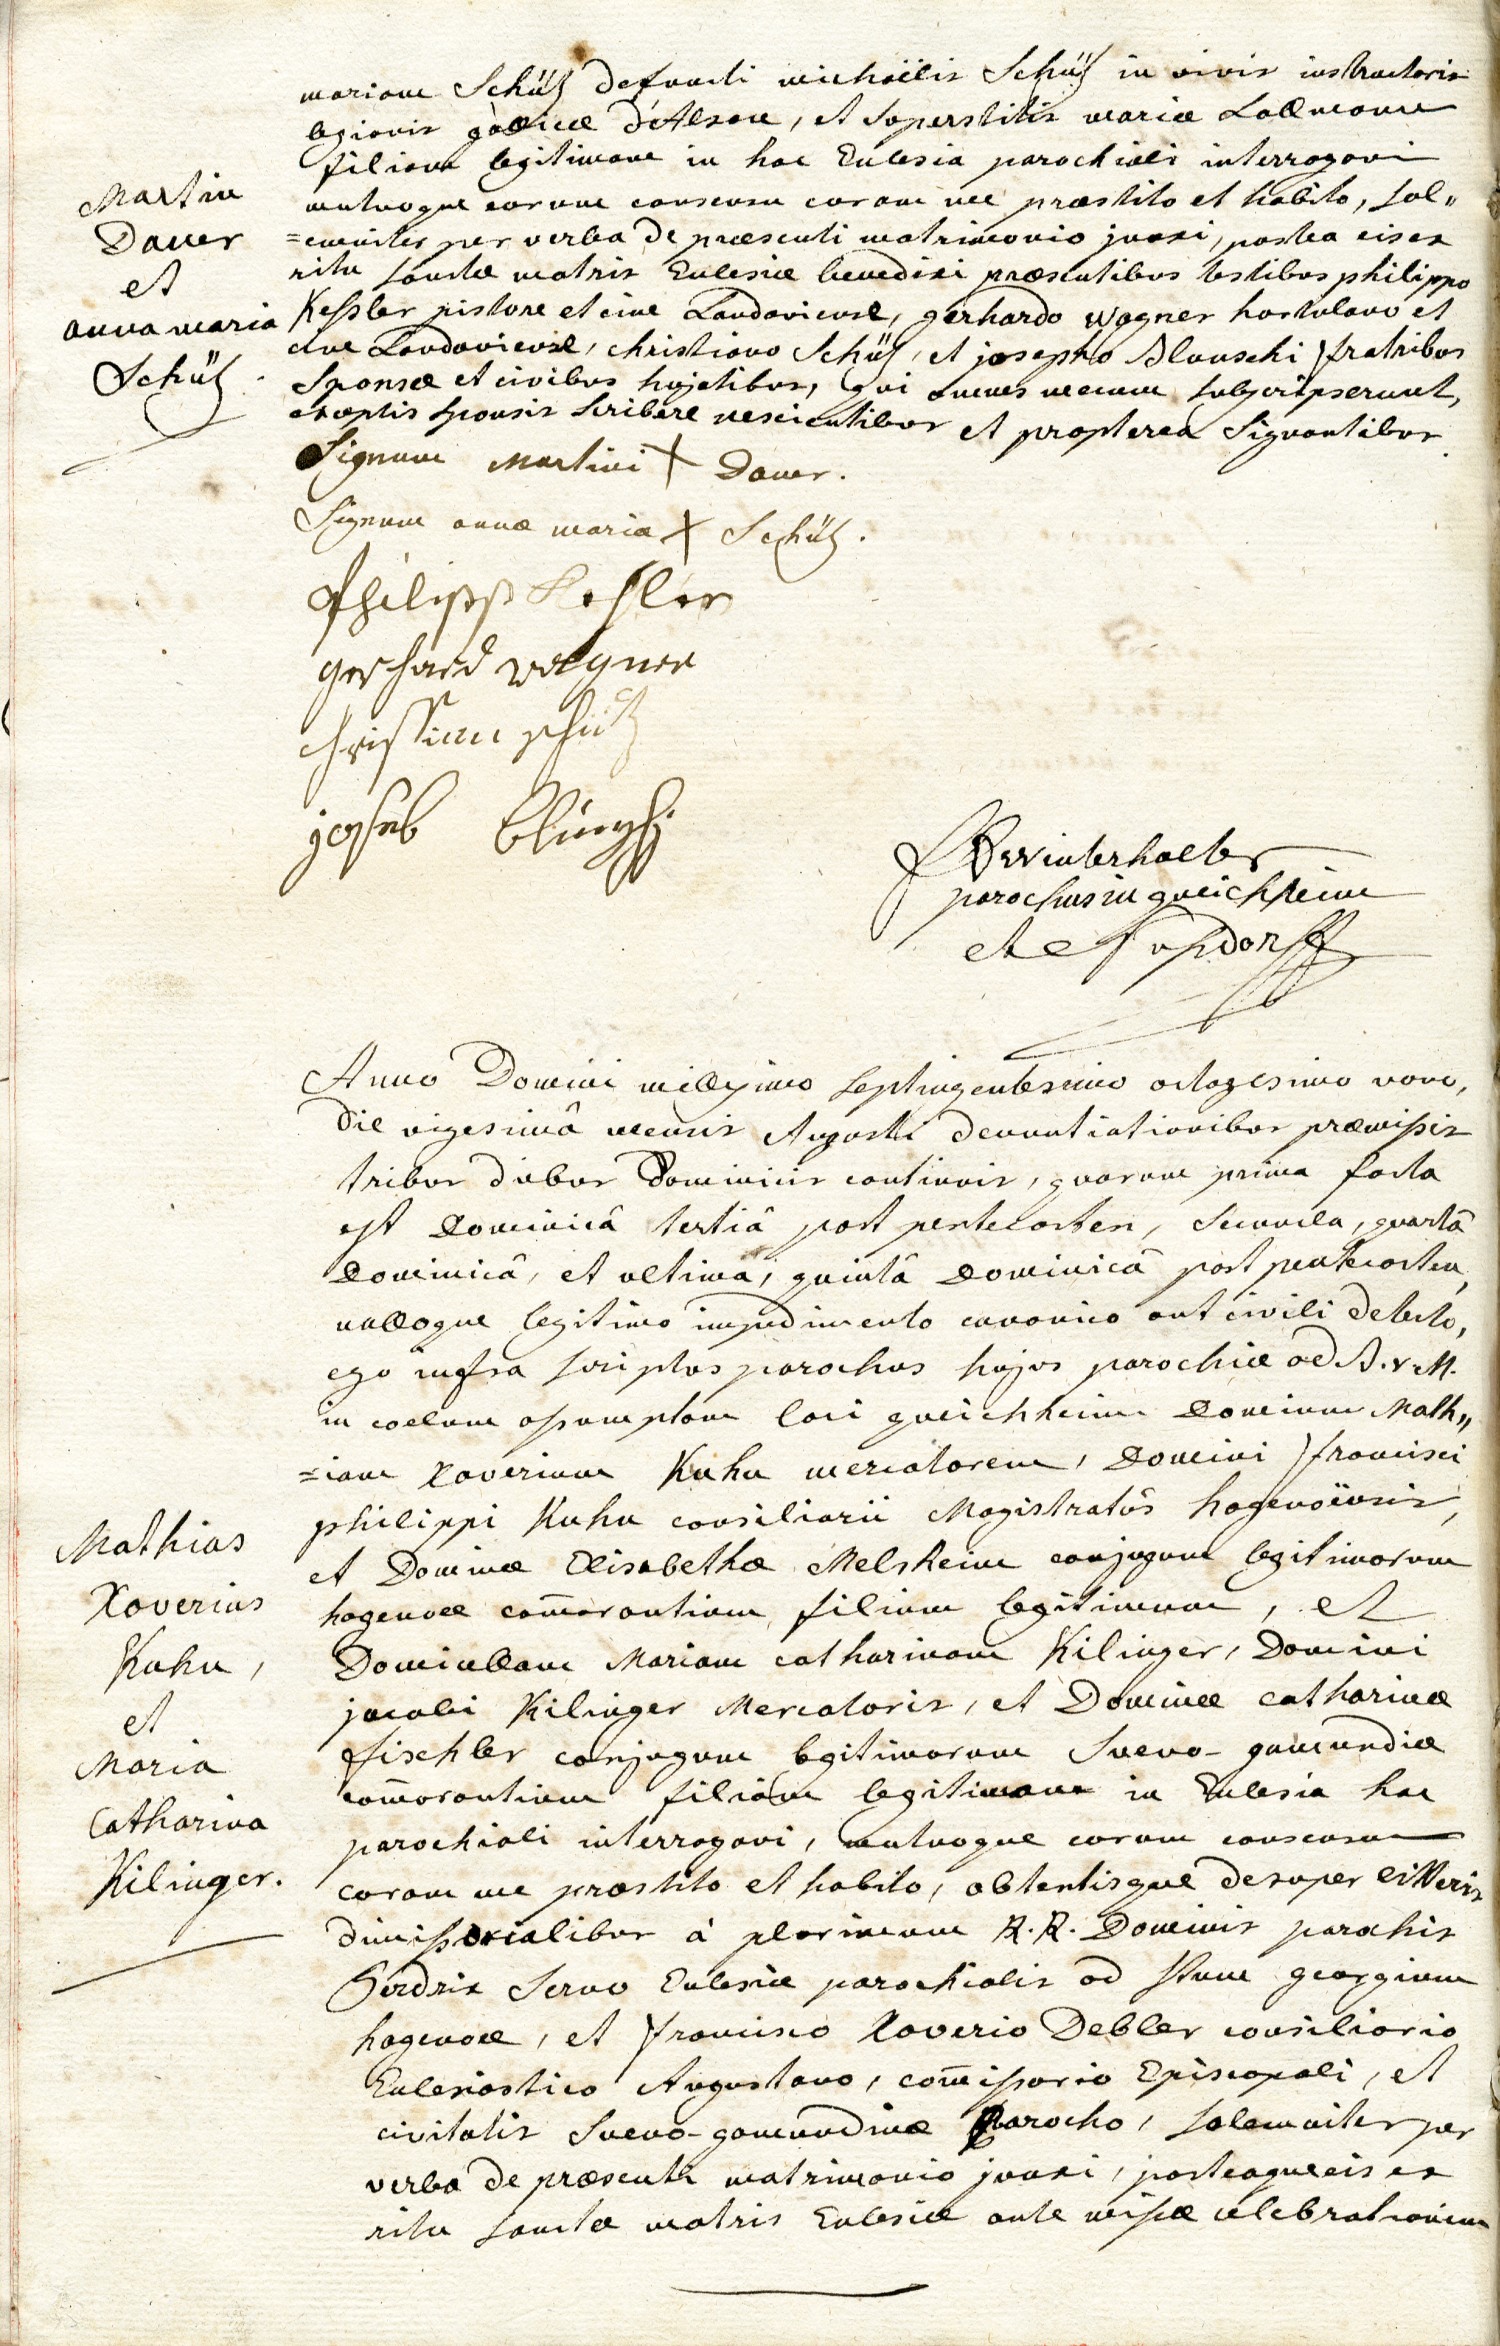 mariam Schütz defuncti michaëlis Schütz in vivis instructoris
legionis gallicæ d'Alsace, et superstitis mariæ Lallmann
filiam legitimam in hac Ecclesia parochiali interrogavi
mutuoque eorum consensu coram me præstito et habito, sol„
=emniter per verba de præsenti matrimonio junxi, postea eis ex
ritu sanctæ matris Ecclesiæ benedixi præsentibus testibus philippo
Keßler pistore et cive Landaviense, gerhardo Wagner hortulano et
cive Landaviense, christiano Schütz, et josepho Blunschi fratribus
Sponsæ et civibus hujatibus, qui omnes mecum subscripserunt,
exceptis sponsis scribere nescientibus et propterea signantibus.
Martin
Dauer
et
anna maria
Schütz.
Signum Martini + Dauer.
Signum annæ maria + Schütz.
Philipp Keßler
gerhard wagner
christian schütz
joseb
Winterhalter
parochus in queichheim
et
Anno Domini millesimo septingentesimo octogesimo nono,
die vigesimâ mensis Augusti denuntiationibus præmißis
tribus diebus Dominicis continuis, quarum prima facta
est Dominicâ tertiâ post pentecosten, secunda, quartâ
Dominicâ, et ultima, quintâ Dominicâ post pentecosten,
nulloque legitimo impedimento canonico aut civili detecto,
ego infra scriptus parochus hujus parochiæ ad B. V. M.
in coelum aßumptam loci queichheim Dominum Math„
=iam Xaverium Kuhn mercatorem, Domini francisci
philippi Kuhn consiliarii Magistratûs hagenoënsis,
et Dominæ Elisabethæ Melsheim conjugum legitimorum
hagenoæ com̅orantium filium legitimum, et
Domicellam Mariam catharinam Kilinger, Domini
jacobi Kilinger Mercatoris, et Dominæ catharinæ
fischler conjugum legitimorum Suevo-gamundiæ
com̅orantium filiam legitimam in Ecclesia hac
parochiali interrogavi, mutuoque eorum consensu
coram me præstito et habito, obtentisque desuper litteris
dimißorialibus à plurimum R. R. Dominis parochis
Servo Ecclesiæ parochialis ad Stum georgium
hagenoæ, et francisco Xaverio Debler consiliario
Ecclesiastico Augustano, com̅ißario Episcopali, et
civitatis Suevo-gamundinæ Parocho, solemniter per
verba de præsenti matrimonio junxi, posteaque eis ex
ritu sanctæ matris Ecclesiæ ante mißæ celebrationem
Mathias
Xaverius
Kuhn,
et
Maria
Catharina
Kilinger.